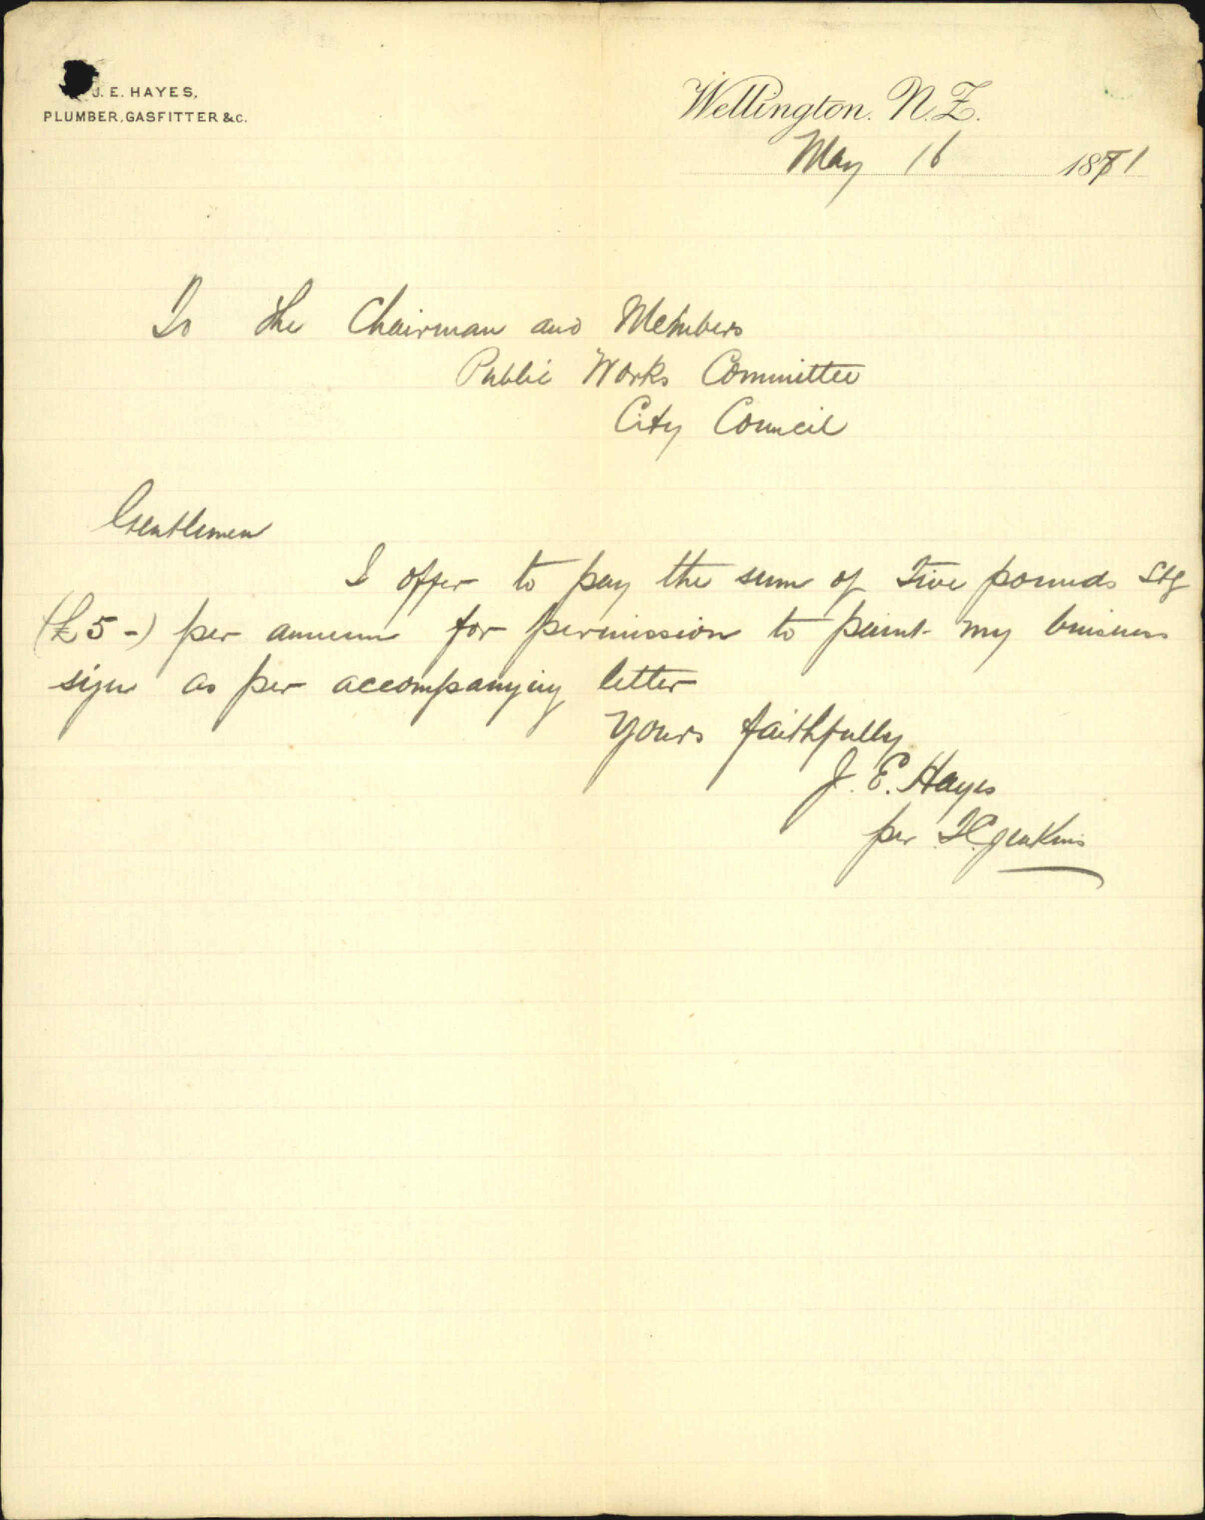 J. E. HAYES,
PLUMBER, GASFITTER &c.
Wellington. N.Z.
May 16 1871
To the Chairman and Members
Public Works Committee
City Council
Gentlemen
I offer to pay the sum of Five pounds Stg
(£5-) per annum for permission to paint my business
sign as per accompanying letter
Yours faithfully
J. E. Hayes
per Jenkins